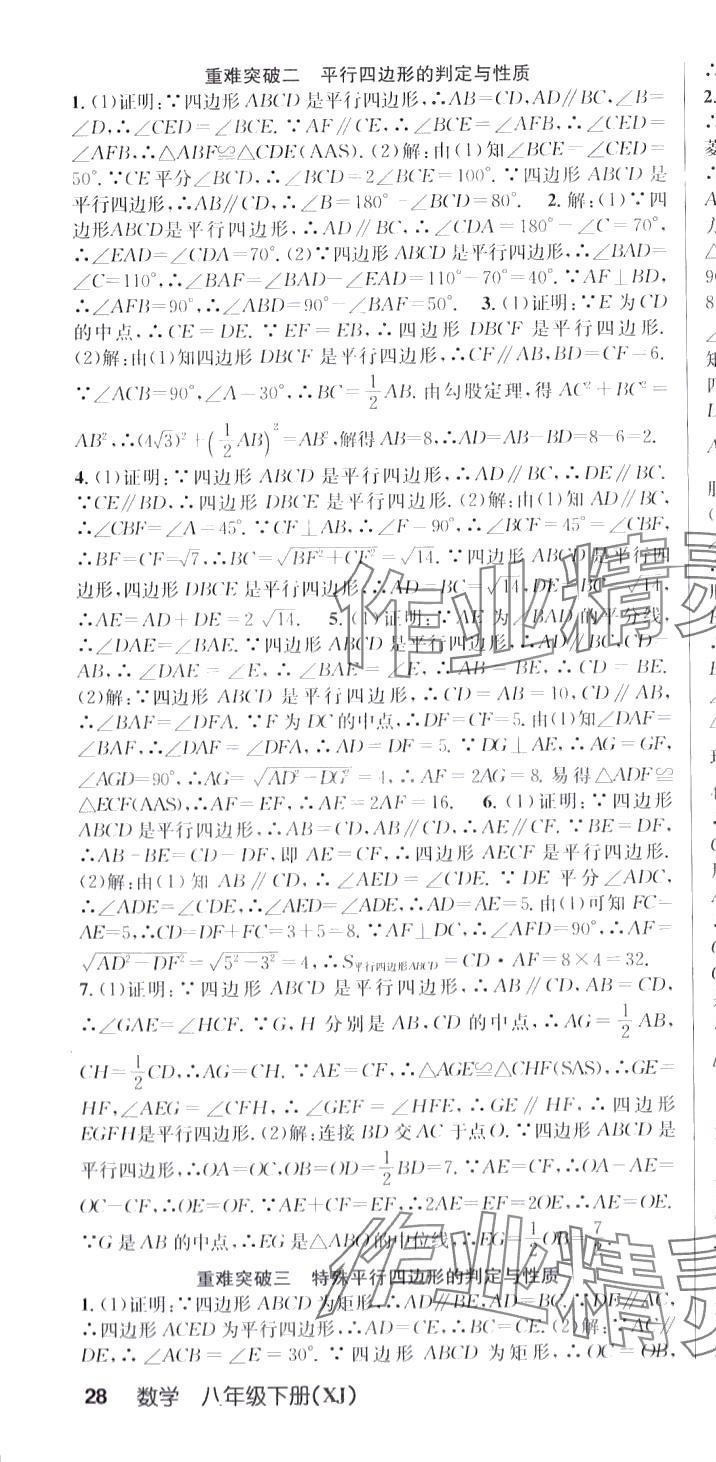 重难突破二 平行四边形的判定与性质
1.(1)证明:∵四边形ABCD是平行四边形,∴AB=CD,AD∥BC,∠B
=∠D,∴∠CED=∠BCE.∵AF∥CE,∴∠BCE=∠AFB,∴∠CED=
∠AFB,∴△ABF≌△CDE(AAS).(2)解:由(1)知∠BCE=∠CED=
50°.∵CE平分∠BCD,∴∠BCD=2∠BCE=100°.∵四边形ABCD是
平行四边形,∴AB∥CD,∴∠B=180°-∠BCD=80°. 2.解:(1)∵四
边形ABCD是平行四边形,∴AD∥BC,∴∠CDA=180°-∠C=70°,
∴∠EAD=∠CDA=70°.(2)∵四边形ABCD是平行四边形,∴∠BAD=
∠C=110°,∴∠BAF=∠BAD-∠EAD=110°-70°=40°.∵AF⊥BD,
∴∠AFB=90°,∴∠ABD=90°-∠BAF=50°. 3.(1)证明:∵E为CD
的中点,∴CE=DE.∵EF=EB,∴四边形DBCF是平行四边形.
(2)解:由(1)知四边形DBCF是平行四边形,∴CF∥AB,BD=CF=6.
∵∠ACB=90°,∠A=30°,∴BC=1/2AB.由勾股定理,得AC²+BC²=
AB²,∴(4√3)²+(1/2AB)²=AB²,解得AB=8,∴AD=AB-BD=8-6=2.
4.(1)证明:∵四边形ABCD是平行四边形,∴AD∥BC,∴DE∥BC.
∵CE∥BD,∴四边形DBCE是平行四边形.(2)解:由(1)知AD∥BC,
∴∠CBF=∠A=45°.∵CF⊥AB,∴∠F=90°,∴∠BCF=45°=∠CBF,
∴BF=CF=√7,∴BC=√(BF²+CF²)=√14.∵四边形ABCD是平行四
边形,四边形DBCE是平行四边形,∴AD=BC=√14,DE=BC=√14,
∴AE=AD+DE=2√14. 5.(1)证明:∵AE为∠BAD的平分线,
∴∠DAE=∠BAE.∵四边形ABCD是平行四边形,∴AD∥BC,CD=
AB,∴∠DAE=∠E,∴∠BAE=∠E,∴AB=BE,∴CD=BE.
(2)解:∵四边形ABCD是平行四边形,∴CD=AB=10,CD∥AB,
∴∠BAF=∠DFA.∵F为DC的中点,∴DF=CF=5.由(1)知∠DAF=
∠BAF,∴∠DAF=∠DFA,∴AD=DF=5.∵DG⊥AE,∴AG=GF,
∠AGD=90°,∴AG=√(AD²-DG²)=4,∴AF=2AG=8.易得△ADF≌
△ECF(AAS),∴AF=EF,∴AE=2AF=16. 6.(1)证明:∵四边形
ABCD是平行四边形,∴AB=CD,AB∥CD,∴AE∥CF.∵BE=DF,
∴AB-BE=CD-DF,即AE=CF,∴四边形AECF是平行四边形.
(2)解:由(1)知AB∥CD,∴∠AED=∠CDE.∵DE平分∠ADC,
∴∠ADE=∠CDE,∴∠AED=∠ADE,∴AD=AE=5.由(1)可知FC=
AE=5,∴CD=DF+FC=3+5=8.∵AF⊥DC,∴∠AFD=90°,∴AF=
√(AD²-DF²)=√(5²-3²)=4,∴S平行四边形ABCD=CD·AF=8×4=32.
7.(1)证明:∵四边形ABCD是平行四边形,∴AB∥CD,AB=CD,
∴∠GAE=∠HCF.∵G,H分别是AB,CD的中点,∴AG=1/2AB,
CH=1/2CD,∴AG=CH.∵AE=CF,∴△AGE≌△CHF(SAS),∴GE=
HF,∠AEG=∠CFH,∴∠GEF=∠HFE,∴GE∥HF,∴四边形
EGFH是平行四边形.(2)解:连接BD交AC于点O.∵四边形ABCD是
平行四边形,∴OA=OC,OB=OD=1/2BD=7.∵AE=CF,∴OA-AE=
OC-CF,∴OE=OF.∵AE+CF=EF,∴2AE=EF=2OE,∴AE=OE.
∵G是AB的中点,∴EG是△ABO的中位线,∴EG=1/2OB=7/2.
重难突破三 特殊平行四边形的判定与性质
1.(1)证明:∵四边形ABCD为矩形,∴AD∥BE,AD=BC.∵DE∥AC,
∴四边形ACED为平行四边形,∴AD=CE,∴BC=CE.(2)解:∵AC∥
DE,∴∠ACB=∠E=30°.∵四边形ABCD为矩形,∴OC=OB,
28 数学 八年级下册(XJ)
作业精灵
作业精灵